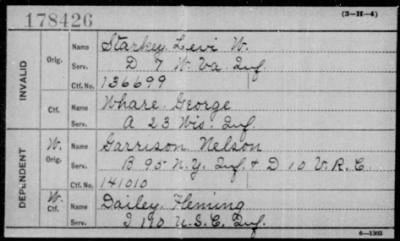 178426
(3-H-4)
INVALID
Orig.
Name Starkey, Levi W.
Serv. D 7 W. Va. Inf.
Ctf. No. 136699
Ctf.
Name Whare George
Serv. A 23 Wis. Inf.
DEPENDENT
W. Orig.
Name Garrison Nelson
Serv. B 95 N.Y. Inf. & D 10 V.R.C.
Ctf. No. 141010
W. Ctf.
Name Dailey, Fleming
Serv. I 110 U.S.C. Inf.
6—1303